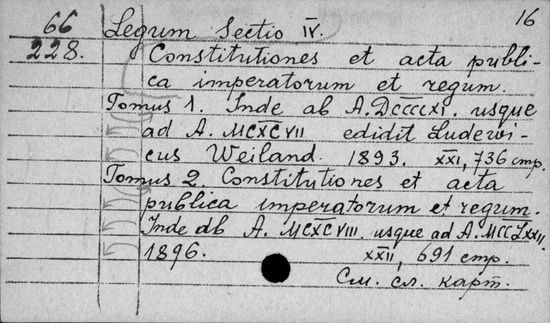 66 Legum Sectio IV. 16
228. Constitutiones et acta publi-
ca imperatorum et regum.
Tomus 1. Inde ab A. DCCCCXI. usque
ad A. MCXCVII edidit Ludewi-
cus Weiland. 1893. XXI, 736 стр.
Tomus 2. Constitutiones et acta
publica imperatorum et regum.
Inde ab A. MCXCVIII. usque ad A. MCCLXXII.
1896. XXII, 691 стр.
См. сл. карт.